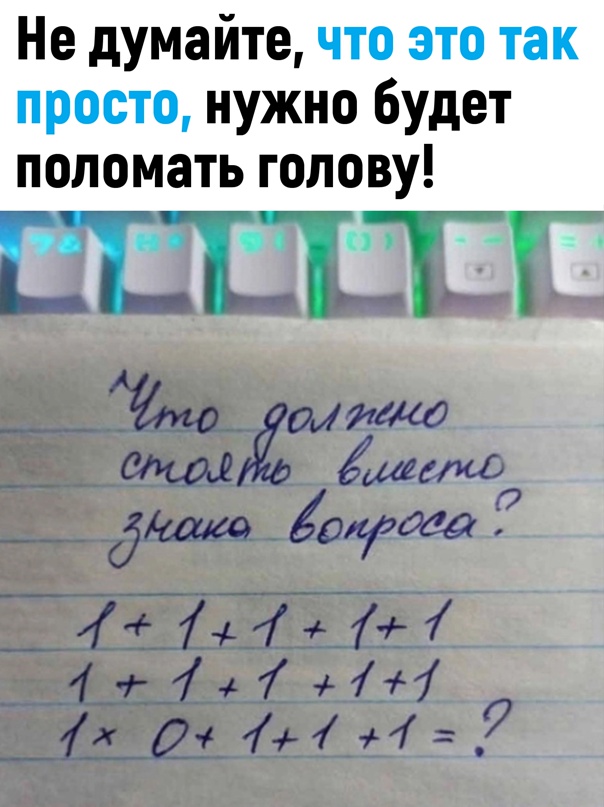 Не думайте, что это так
просто, нужно будет
поломать голову!
7 &
9 (
0 )
- –
= +
Что должно
стоять вместо
знака вопроса?
1 + 1 + 1 + 1 + 1
1 + 1 + 1 + 1 + 1
1 × 0 + 1 + 1 + 1 = ?